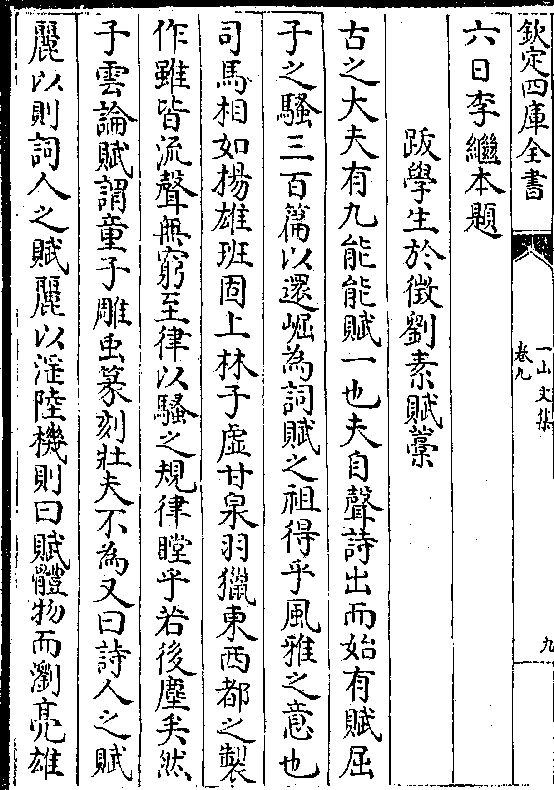 欽定四庫全書
一山文集
卷九
九
六日李繼本題
跋學生於徵劉素賦藁
古之大夫有九能能賦一也夫自聲詩出而始有賦屈
子之騷三百篇以還崛為詞賦之祖得乎風雅之意也
司馬相如揚雄班固上林子虛甘泉羽獵東西都之製
作雖皆流聲無窮至律以騷之規律瞠乎若後塵矣然
子雲論賦謂童子雕虫篆刻壯夫不為又曰詩人之賦
麗以則詞人之賦麗以淫陸機則曰賦體物而瀏亮雄